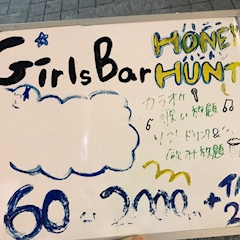 Girls Bar HONEY HUNT
カラオケ
歌い放題
ソフトドリンク&
飲み放題
60分 2000